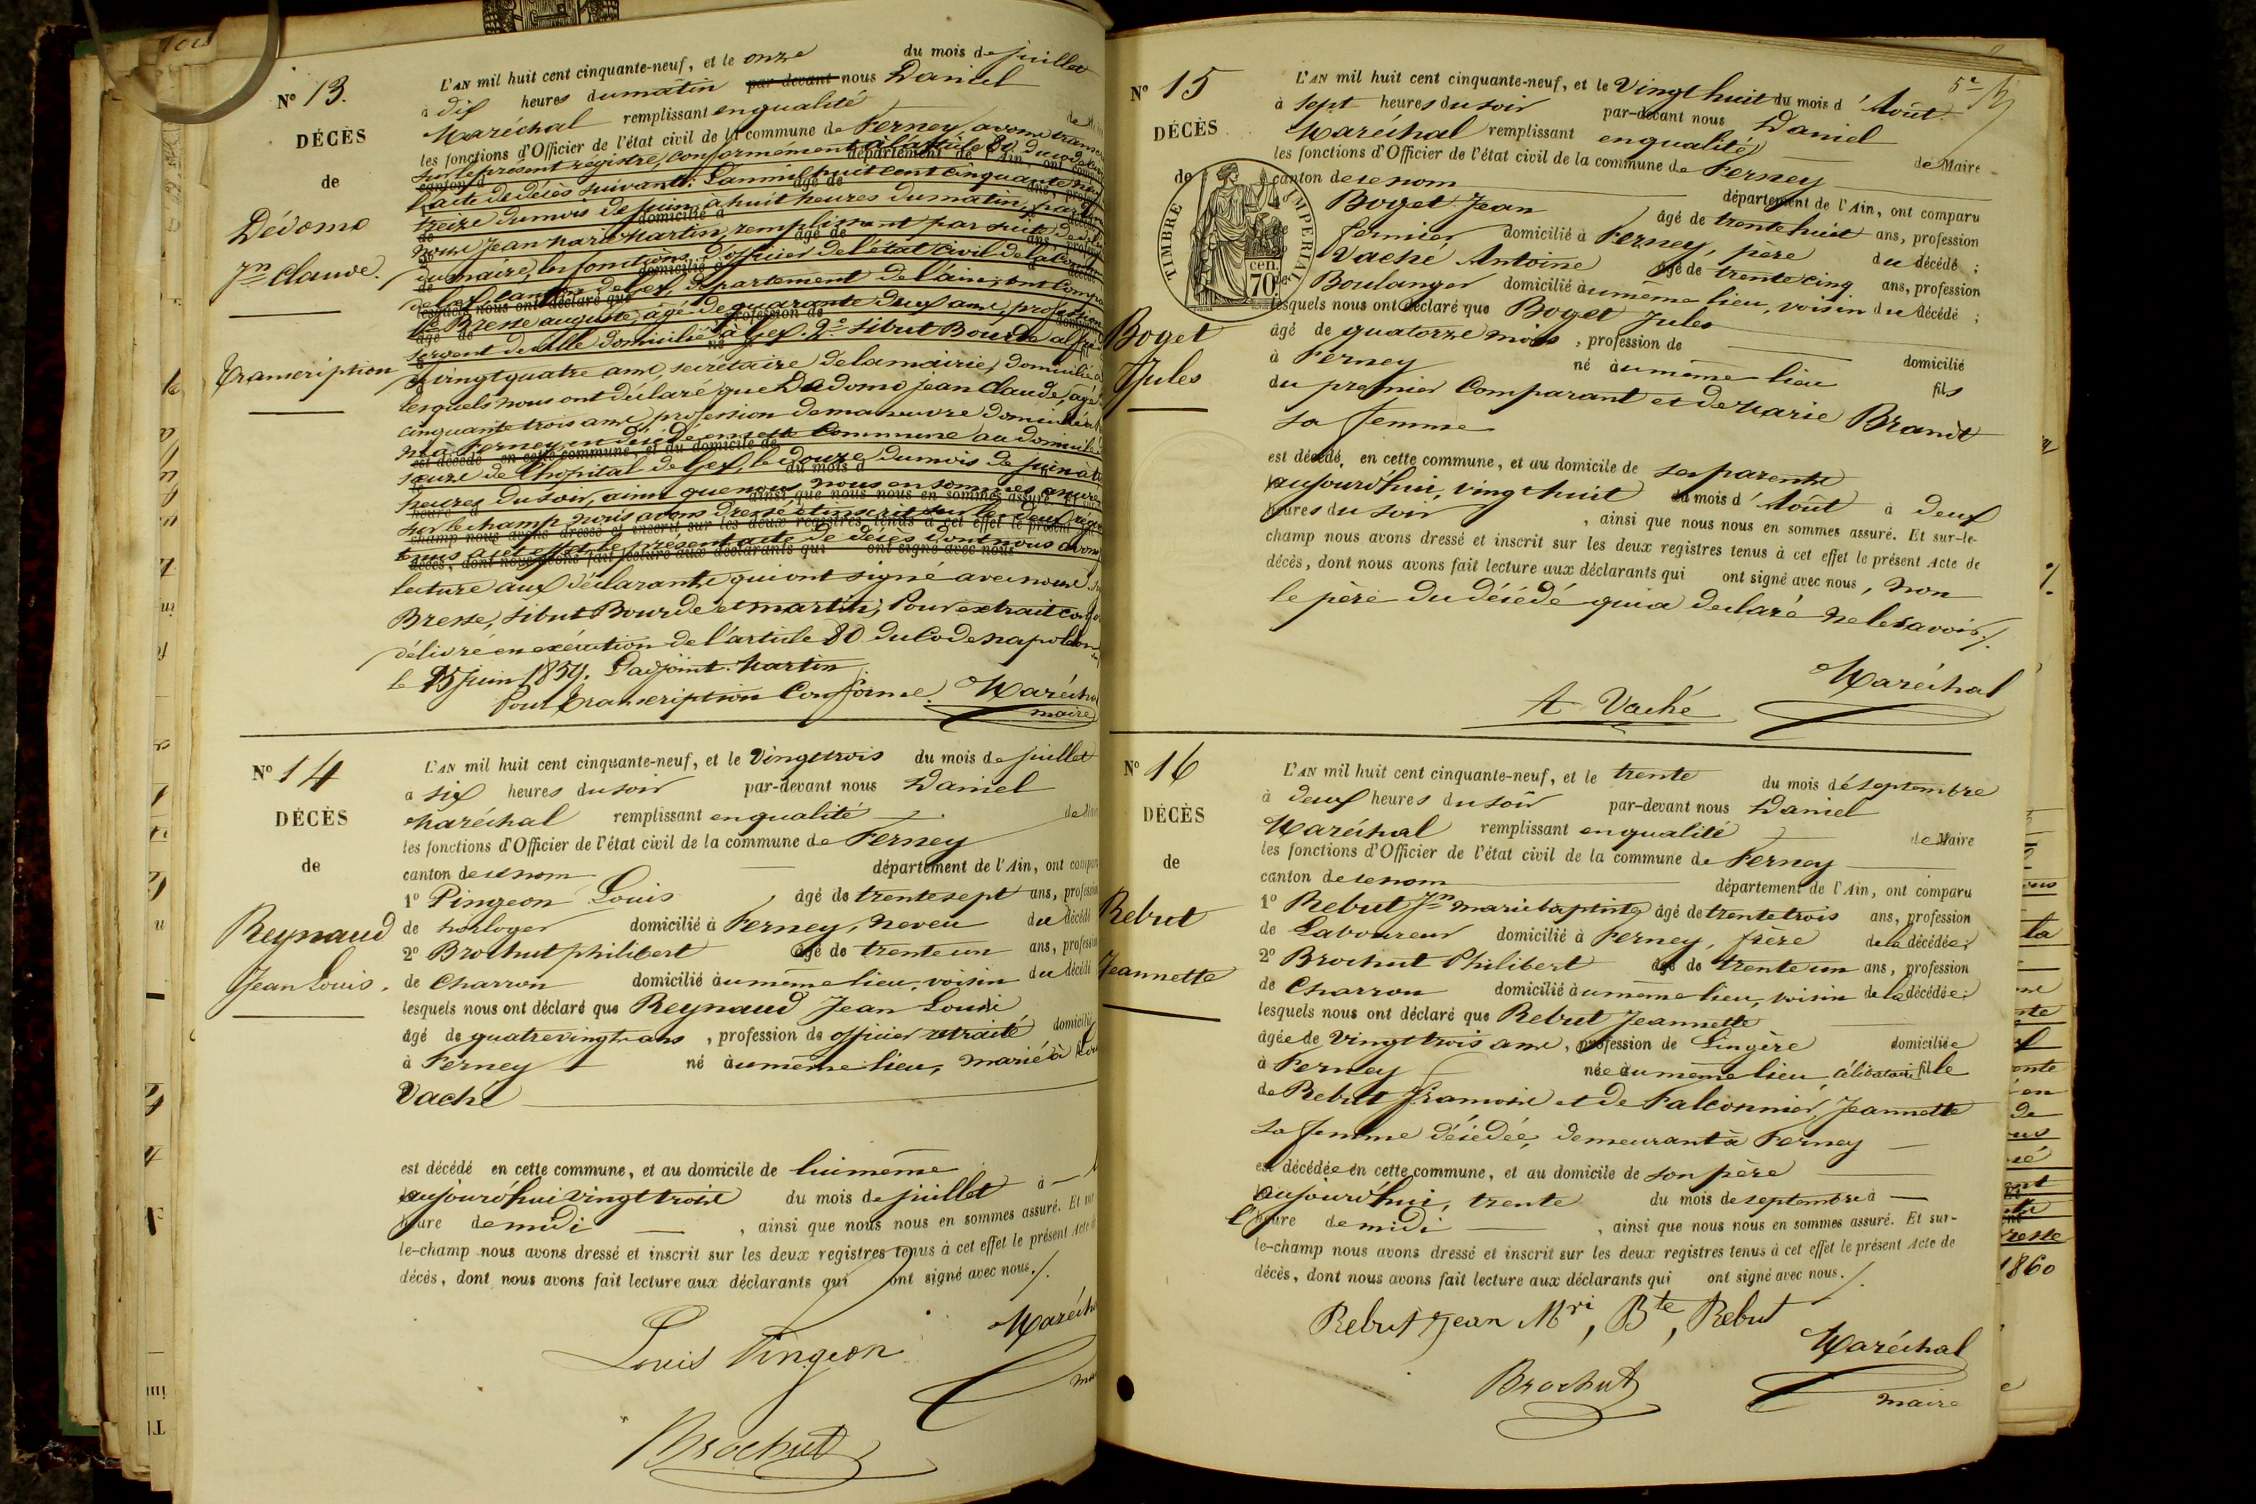 N° 13.
DÉCÈS
de
Dédomo
Jn Claude.
Transcription
L'AN mil huit cent cinquante-neuf, et le onze du mois de juillet
à dix heures du matin par devant nous Daniel
Maréchal remplissant en qualité de
les fonctions d'Officier de l'état civil de la commune de Ferney, avons
sur le présent registre, conformément à l'article 80 du code
canton d département de l'Ain, ont
l'acte de décès suivant: L'an mil huit cent cinquante neuf
treize du mois de juin, à huit heures du matin, par
nous Jean Marc Martin, remplissant par suite de
du maire, les fonctions d'officier de l'état civil de la
de Gex, canton de Gex, département de l'Ain, ont
lesquels nous ont déclaré que
Bresse auguste, âgé de quarante deux ans, profession
sergent de ville domicilié à Gex. 2° Sibut Bourde
vingt quatre ans, secrétaire de la mairie, domicilié à
lesquels nous ont déclaré que Dédomo Jean Claude, âgé
cinquante trois ans, profession de manœuvre domicilié à
né à Ferney, est décédé en cette Commune au domicile
est décédé en cette commune, et au domicile de
sœurs de l'hopital de Gex, le douze du mois de juin à
heures du soir, ainsi que nous nous en sommes assuré
sur le champ nous avons dressé et inscrit sur les deux
champ nous avons dressé et inscrit sur les deux registres tenus à cet effet le présent
tenus à cet effet le présent acte de décès dont nous avons
décès, dont nous avons fait lecture aux déclarants qui ont signé avec nous
lecture aux déclarants qui ont signé avec nous
Bresse, Sibut Bourde et Martin; Pour extrait
délivré en exécution de l'article 80 du Code napoléon
le 25 juin 1859. L'adjoint. Martin
Pour Transcription Conforme. Maréchal
maire
N° 14
DÉCÈS
de
Reynaud
Jean Louis.
L'AN mil huit cent cinquante-neuf, et le Vingt trois du mois de juillet
à six heures du soir par-devant nous Daniel
Maréchal remplissant en qualité de
les fonctions d'Officier de l'état civil de la commune de Ferney
canton de ce nom département de l'Ain, ont
1° Pingeon Louis âgé de trente sept ans, profession
de horloger domicilié à Ferney, neveu du décédé
2° Brochut philibert âgé de trente un ans, profession
de Charron domicilié au même lieu, voisin du décédé
lesquels nous ont déclaré que Reynaud Jean Louis
âgé de quatre vingts ans, profession de officier retraité domicilié
à Ferney né au même lieu, marié à
Vaché
est décédé en cette commune, et au domicile de lui même
aujourd'hui vingt trois du mois de juillet à
heure de midi, ainsi que nous nous en sommes assuré. Et
le-champ nous avons dressé et inscrit sur les deux registres tenus à cet effet le présent Acte
décès, dont nous avons fait lecture aux déclarants qui ont signé avec nous./.
Louis Pingeon
Maréchal
Brochut
5e
N° 15
DÉCÈS
de
TIMBRE IMPERIAL
70 cen.
Boget
Jules
L'AN mil huit cent cinquante-neuf, et le Vingt huit du mois d'Août
à sept heures du soir par-devant nous Daniel
Maréchal remplissant en qualité de Maire
les fonctions d'Officier de l'état civil de la commune de Ferney
canton de ce nom département de l'Ain, ont comparu
Boget Jean âgé de trente huit ans, profession
fermier domicilié à Ferney, père du décédé ;
Vaché Antoine âgé de trente cinq ans, profession
de Boulanger domicilié au même lieu, voisin du décédé ;
lesquels nous ont déclaré que Boget Jules
âgé de quatorze mois, profession de domicilié
à Ferney né au même lieu fils
du premier Comparant et de Marie Brandt
Sa femme
est décédé, en cette commune, et au domicile de ses parents
aujourd'hui, vingt huit du mois d'Août à deux
heures du soir, ainsi que nous nous en sommes assuré. Et sur-le-
champ nous avons dressé et inscrit sur les deux registres tenus à cet effet le présent Acte de
décès, dont nous avons fait lecture aux déclarants qui ont signé avec nous, non
le père du décédé qui a déclaré ne le savoir./.
Maréchal
A Vaché
N° 16
DÉCÈS
de
Rebut
Jeannette
L'AN mil huit cent cinquante-neuf, et le trente du mois de septembre
à deux heures du soir par-devant nous Daniel
Maréchal remplissant en qualité de Maire
les fonctions d'Officier de l'état civil de la commune de Ferney
canton de ce nom département de l'Ain, ont comparu
1° Rebut Jn marie baptiste âgé de trente trois ans, profession
de Laboureur domicilié à Ferney, frère de la décédée;
2° Brochut Philibert âgé de trente un ans, profession
de Charron domicilié au même lieu, voisin de la décédée;
lesquels nous ont déclaré que Rebut Jeannette
âgée de Vingt trois ans, profession de Lingère domiciliée
à Ferney née au même lieu, célibataire fille
de Rebut François et de Falconnier, Jeannette
Sa femme décédée, demeurant à Ferney
est décédée en cette commune, et au domicile de son père
aujourd'hui, trente du mois de septembre à
l'heure de midi, ainsi que nous nous en sommes assuré. Et sur-
le-champ nous avons dressé et inscrit sur les deux registres tenus à cet effet le présent Acte de
décès, dont nous avons fait lecture aux déclarants qui ont signé avec nous./.
Rebut Jean Mri, Bte, Rebut
Maréchal
Brochut
maire
1860